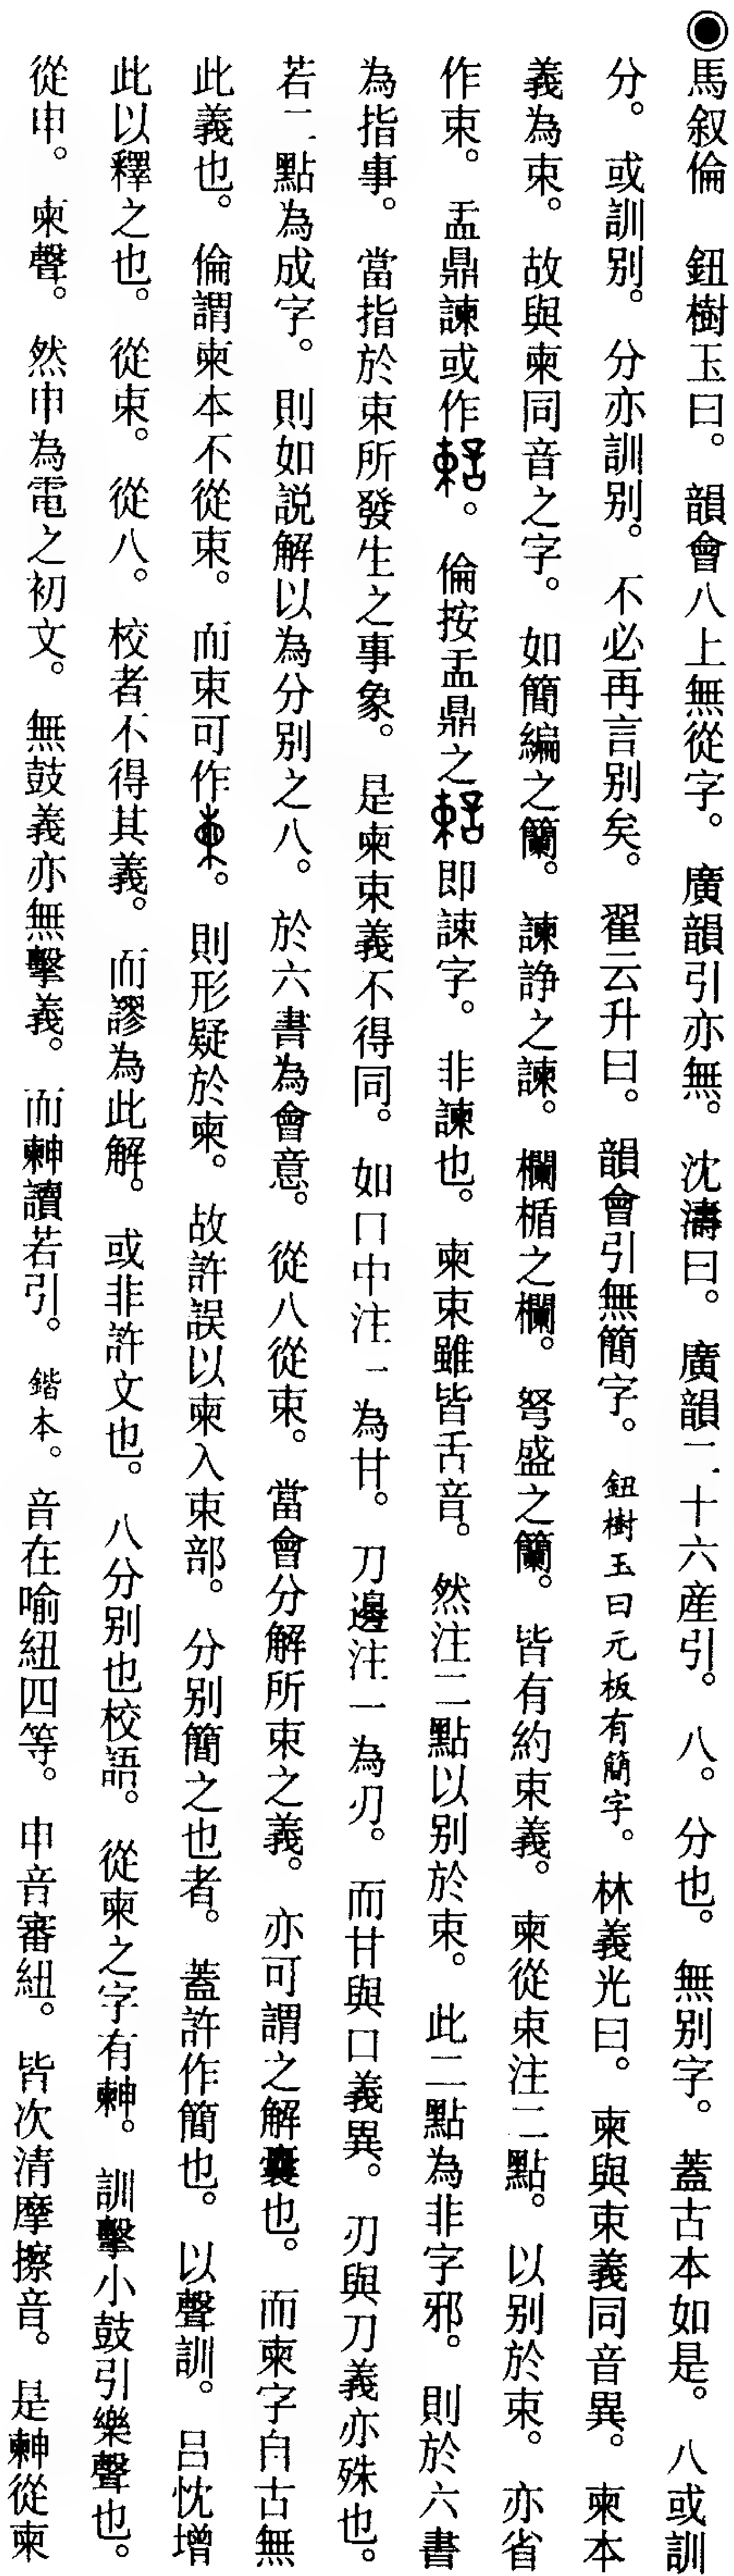 ◉馬叙倫　鈕樹玉曰。韻會八上無從字。廣韻引亦無。沈濤曰。廣韻二十六産引。八。分也。無别字。蓋古本如是。八或訓
分。或訓别。分亦訓别。不必再言别矣。翟云升曰。韻會引無簡字。鈕樹玉曰元板有簡字。林義光曰。柬與束義同音異。柬本
義為束。故與柬同音之字。如簡編之籣。諫諍之諫。欄楯之欄。弩盛之籣。皆有約束義。柬從束注二點。以别於束。亦省
作束。盂鼎諫或作。倫按盂鼎之即諫字。非諫也。柬束雖皆舌音。然注二點以别於束。此二點為非字邪。則於六書
為指事。當指於束所發生之事象。是柬束義不得同。如口中注一為甘。刀邊注一為刃。而甘與口義異。刃與刀義亦殊也。
若二點為成字。則如説解以為分别之八。於六書為會意。從八從束。當會分解所束之義。亦可謂之解囊也。而柬字自古無
此義也。倫謂柬本不從束。而束可作。則形疑於柬。故許誤以柬入束部。分别簡之也者。蓋許作簡也。以聲訓。吕忱增
此以釋之也。從束。從八。校者不得其義。而謬為此解。或非許文也。八分别也校語。從柬之字有𣌾。訓擊小鼓引樂聲也。
從申。柬聲。然申為電之初文。無鼓義亦無擊義。而𣌾讀若引。鍇本。音在喻紐四等。申音審紐。皆次清摩擦音。是𣌾從柬